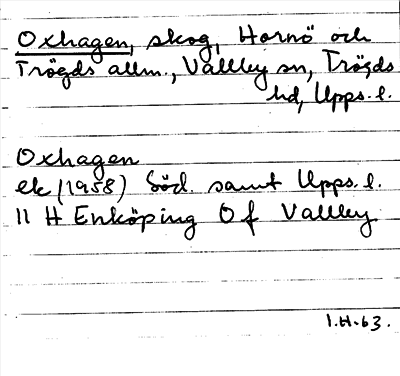 Oxhagen, skog, Hornö och
Trögds allm., Vallby sn, Trögds
hd, Upps. l.
Oxhagen
ek (1958) Söd. samt Upps. l.
11 H Enköping 0 f Vallby
I.H-63.